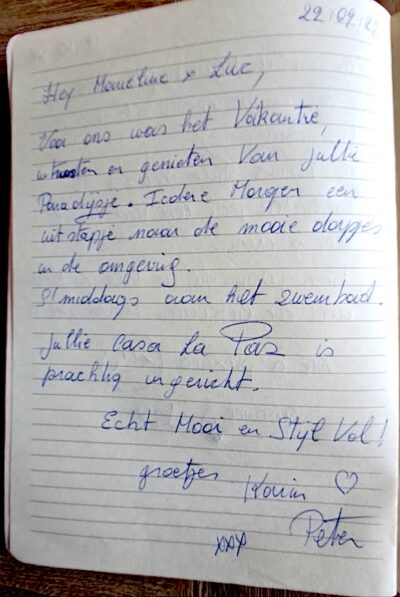 Hey & Luc,
Voor ons was het Vakantie,
en genieten Van jullie
Paradijsje. Iedere Morgen een
uitstapje naar de mooie dorpjes
in de omgevig.
S'middags aan het zwembad.
Jullie Casa La Paz is
prachtig ingericht.
Echt Mooi en Stijl Vol!
groetjes
Karin ♡
Peter
xxx